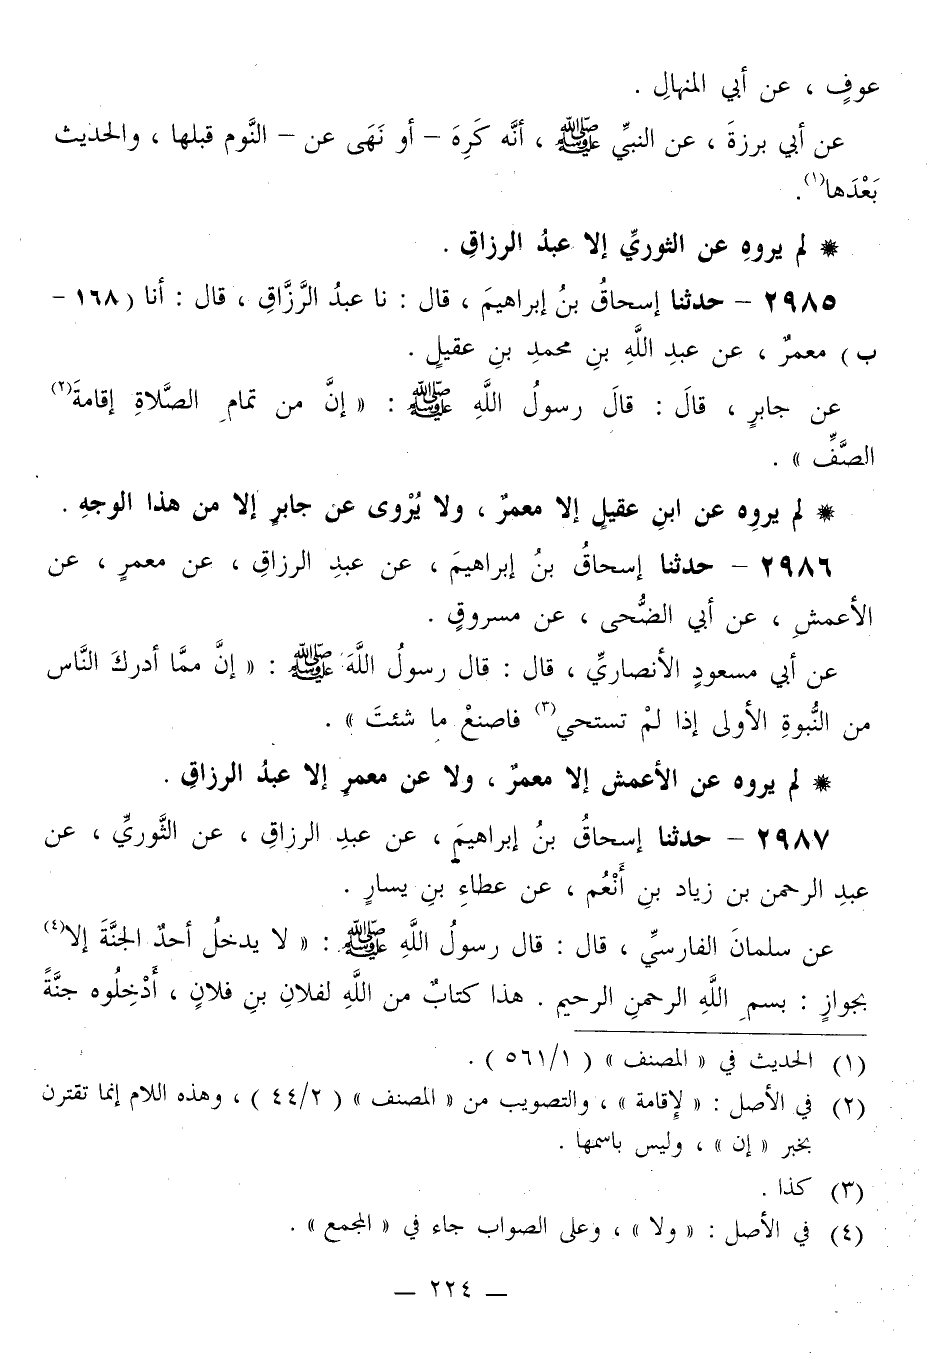 عوفٍ ، عن أبي المنهالِ .
عن أبي برزةَ ، عن النبيِّ ﷺ ، أنَّه كَرِهَ – أو نَهَى عن – النَّوم قبلها ، والحديث
بَعْدَها(١).
✵ لم يروهِ عن الثوريِّ إلا عبدُ الرزاقِ .
٢٩٨٥ – حدثنا إسحاقُ بنُ إبراهيمَ ، قال : نا عبدُ الرَّزَّاقِ ، قال : أنا (١٦٨ –
ب) معمرٌ ، عن عبدِ اللَّهِ بنِ محمدِ بنِ عقيلٍ .
عن جابرٍ ، قالَ : قالَ رسولُ اللَّهِ ﷺ : « إنَّ من تمامِ الصَّلاةِ إقامةَ(٢)
الصَّفِّ » .
✵ لم يروِه عن ابنِ عقيلٍ إلا معمرٌ ، ولا يُرْوى عن جابرٍ إلا من هذا الوجهِ .
٢٩٨٦ – حدثنا إسحاقُ بنُ إبراهيمَ ، عن عبدِ الرزاقِ ، عن معمرٍ ، عن
الأعمشِ ، عن أبي الضُّحى ، عن مسروقٍ .
عن أبي مسعودٍ الأنصاريِّ ، قال : قال رسولُ اللَّهَ ﷺ : « إنَّ ممَّا أدركَ النَّاس
من النُّبوةِ الأولى إذا لمْ تستحي(٣) فاصنعْ ما شئتَ » .
✵ لم يروه عن الأعمش إلا معمرٌ ، ولا عن معمرٍ إلا عبدُ الرزاقِ .
٢٩٨٧ – حدثنا إسحاقُ بنُ إبراهيمَ ، عن عبدِ الرزاقِ ، عن الثَّوريِّ ، عن
عبدِ الرحمن بن زياد بنِ أَنْعُم ، عن عطاءِ بنِ يسارٍ .
عن سلمانَ الفارسيِّ ، قال : قال رسولُ اللَّهِ ﷺ : « لا يدخلُ أحدٌ الجنَّةَ إلا(٤)
بجوازٍ : بسمِ اللَّهِ الرحمنِ الرحيم . هذا كتابٌ من اللَّهِ لفلانِ بنِ فلانٍ ، أَدْخِلُوه جنَّةً
(١) الحديث في « المصنف » ( ٥٦١/١ ) .
(٢) في الأصل : « لإقامة » ، والتصويب من « المصنف » ( ٤٤/٢ ) ، وهذه اللام إنما تقترن
بخبر « إن » ، وليس باسمها .
(٣) كذا .
(٤) في الأصل : « ولا » ، وعلى الصواب جاء في « المجمع » .
— ٢٢٤ —